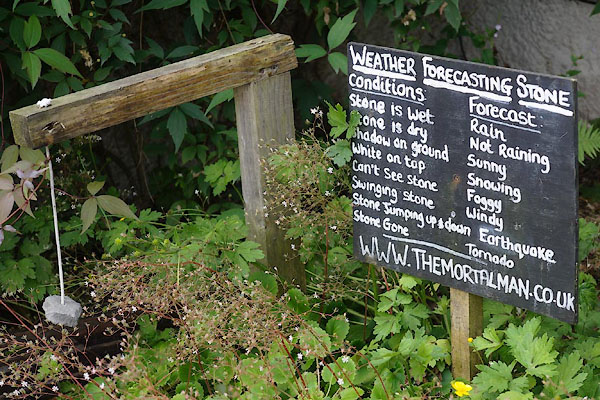 WEATHER FORECASTING STONE
Conditions: Forecast:
Stone is wet Rain
Stone is dry Not Raining
Shadow on ground Sunny
White on top Snowing
Can't see stone Foggy
Swinging stone Windy
Stone Jumping up & down Earthquake
Stone Gone Tornado
WWW.THEMORTALMAN.CO.UK